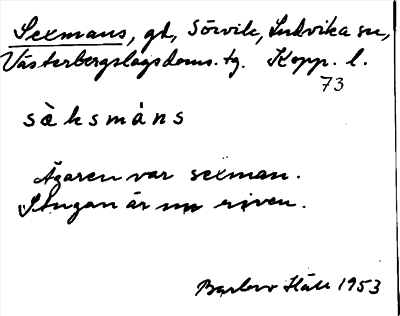 Sexmans, gd, Sörvik, Ludvika sn,
Västerbergslags doms. tg. Kopp. l.
73
sàksmáns
Ägaren var sexman.
Stugan är nu riven.
1953